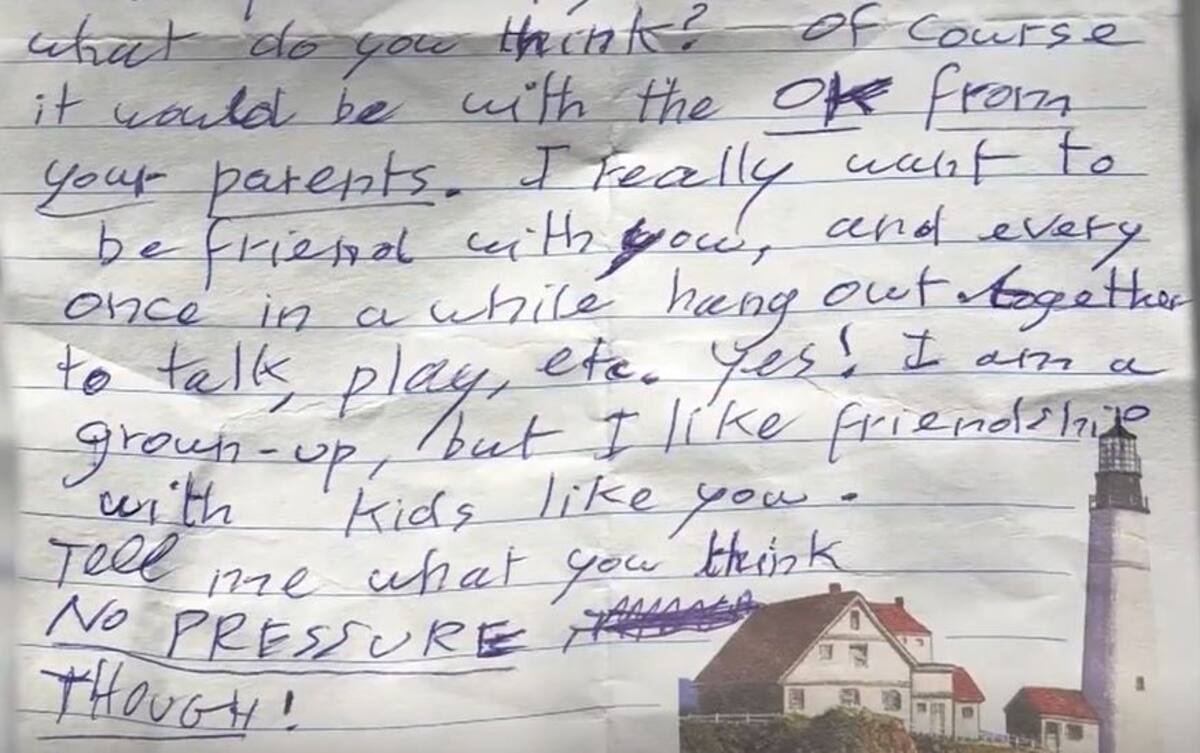 what do you think? Of course
it would be with the OK from
your parents. I really want to
be friend with you, and every
once in a while hang out together
to talk, play, etc. Yes! I am a
grown-up, but I like friendship
with kids like you.
Tell me what you think
NO PRESSURE
THOUGH!